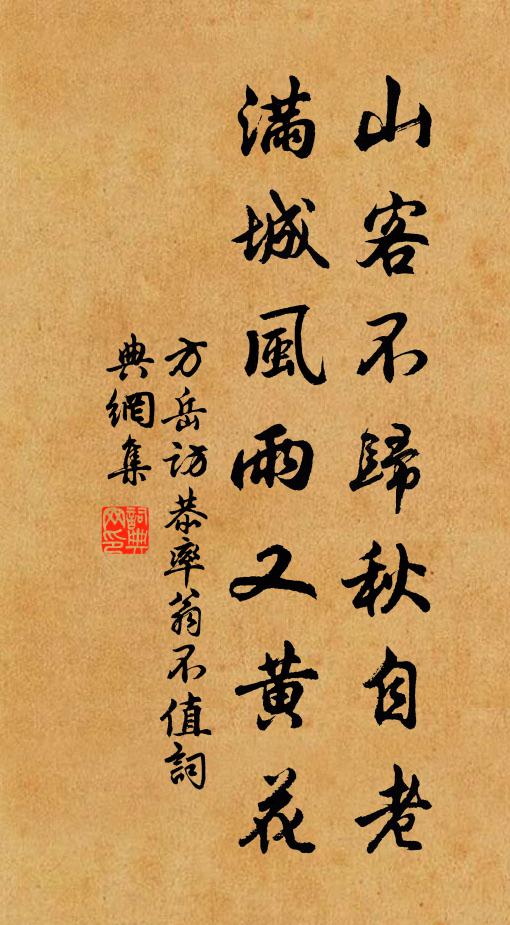 山客不歸秋自老
滿城風雨又黃花
方岳訪恭率翁不值詞
典網集
詞典
網印